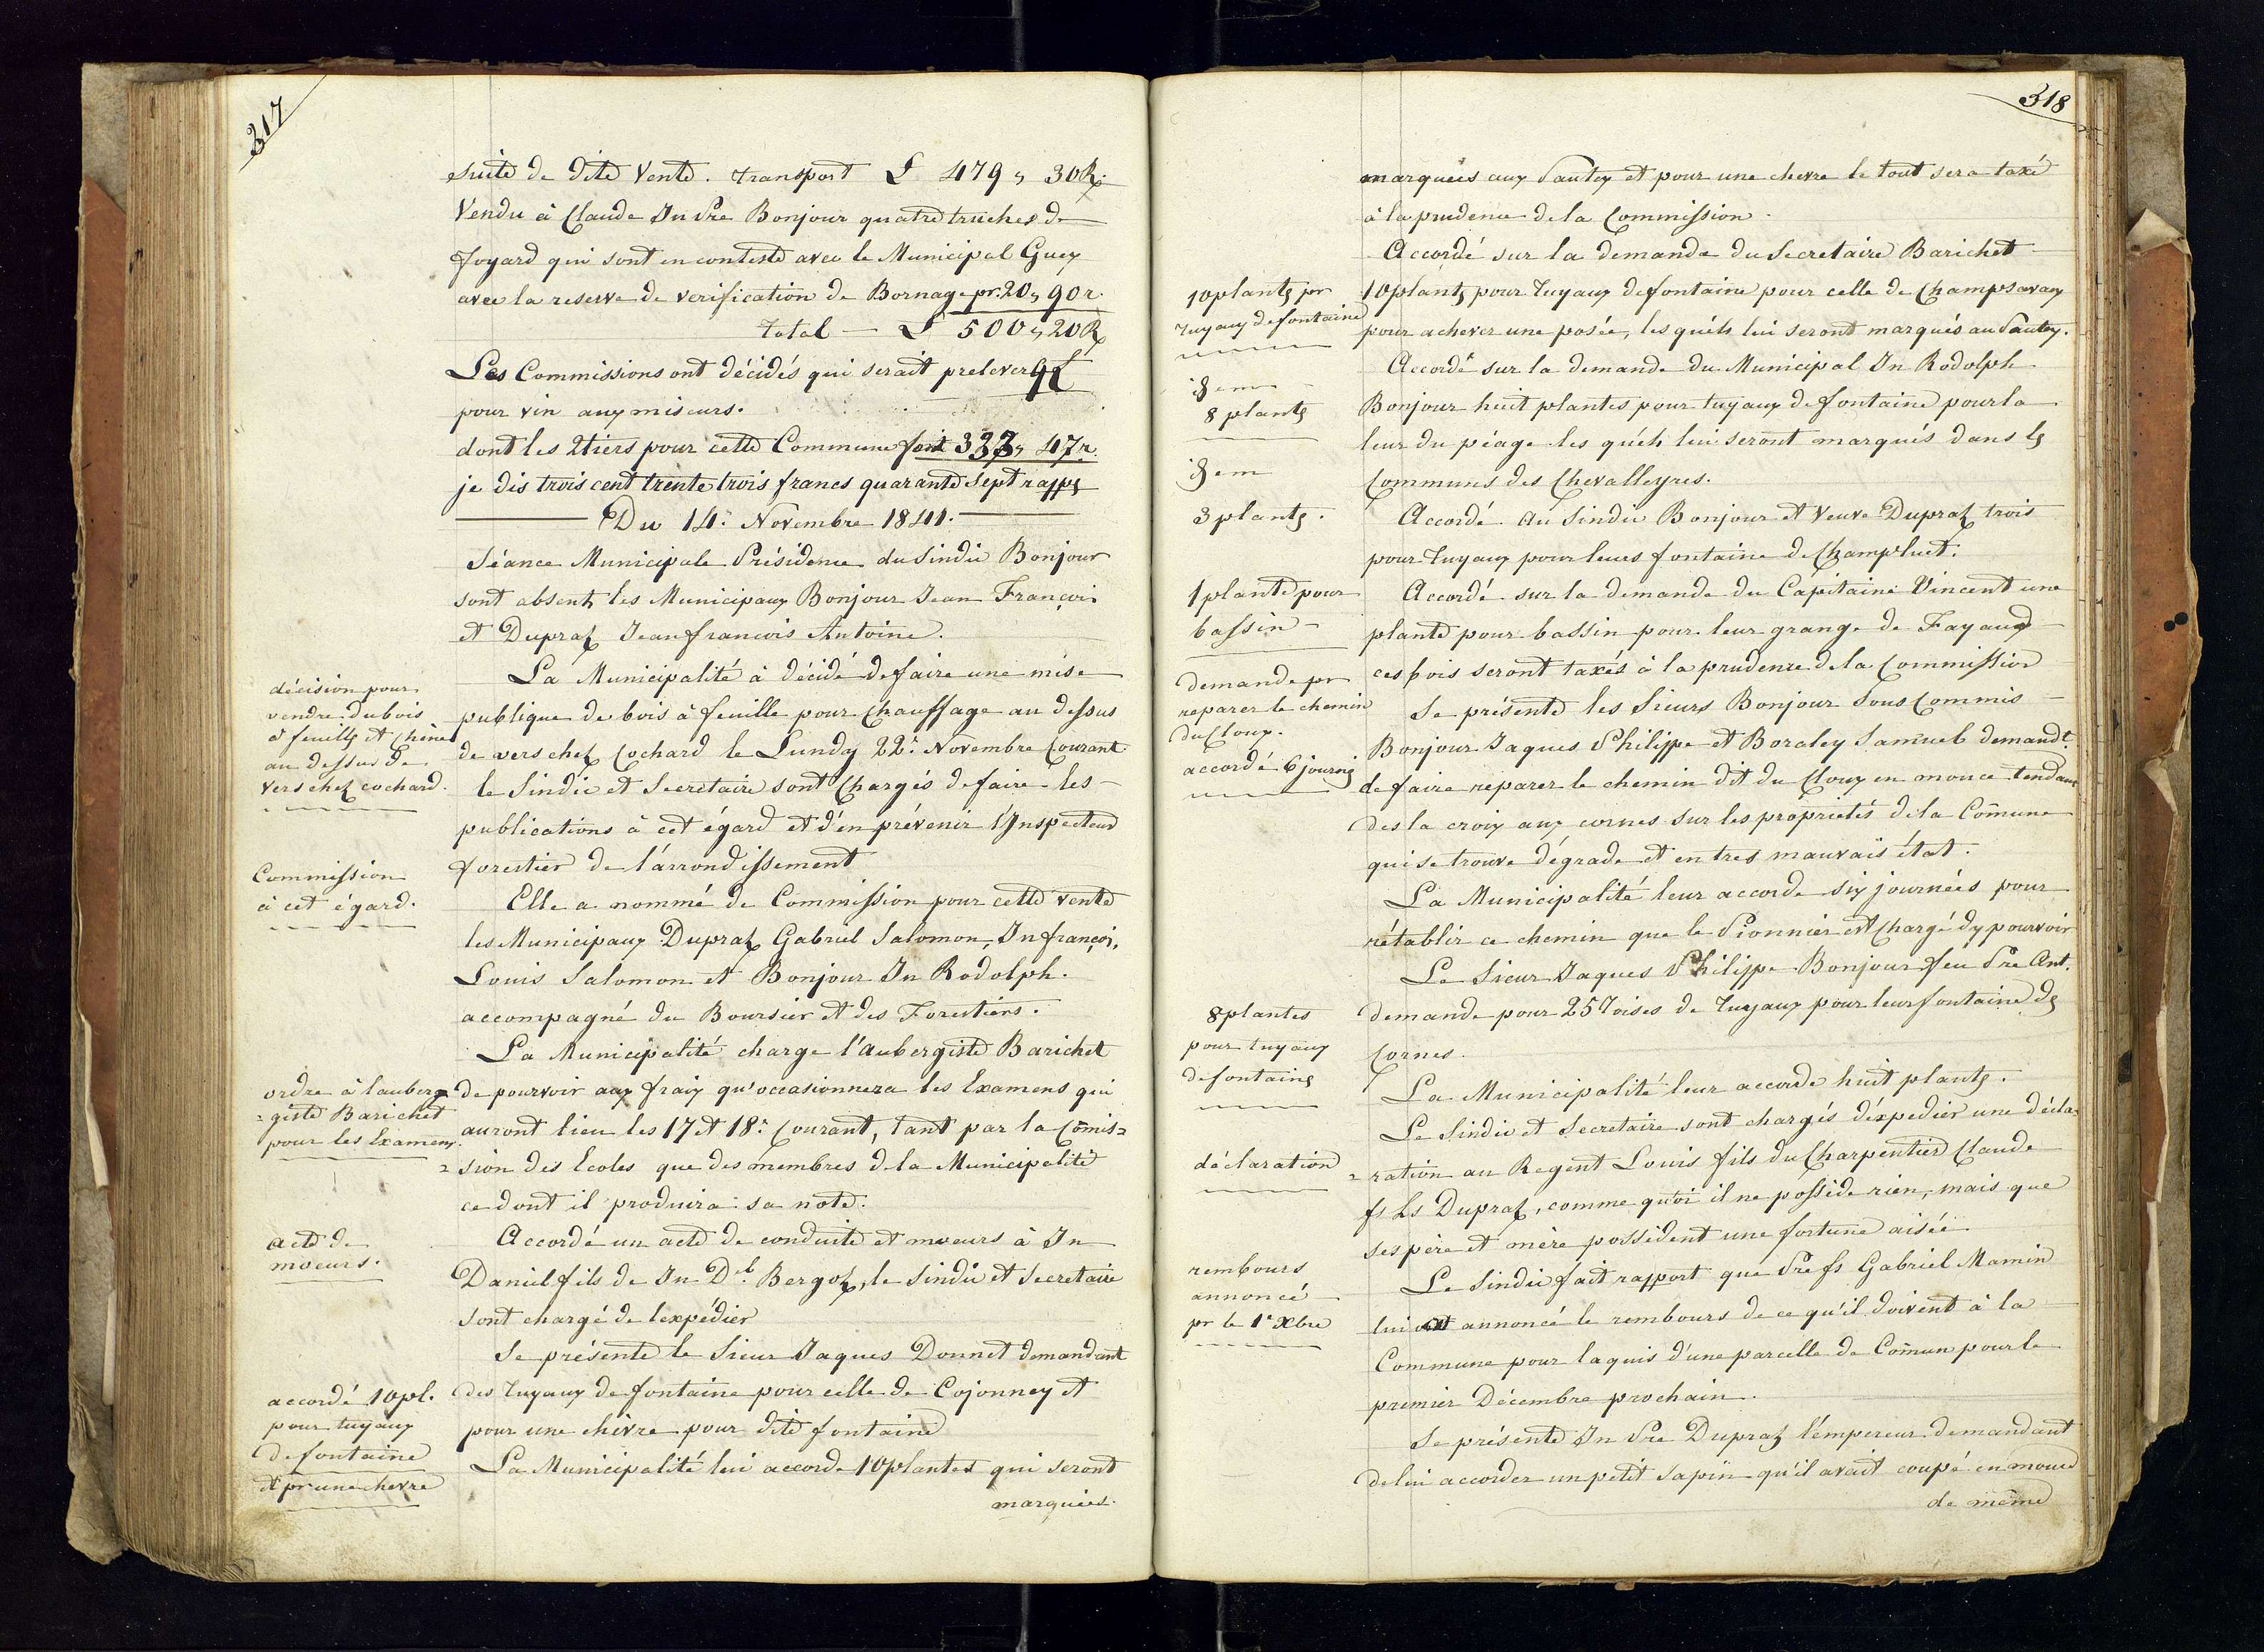 317
suite de dite Vente. transport L 479 " 30 R.
Vendu à Claude Jn Pre Bonjour quatre truches de
foyard qui sont en conteste avec le Municipal Guex
avec la reserve de verification de Bornage pr. 20 " 90 r.
total — L 500 " 20 R
Les Commissions ont décidés qui serait prelever
pour vin aux miseurs.
dont les 2 tiers pour cette Commune font 333 " 47 r.
je dis trois cent trente trois francs quarante sept rapps
Du 14. Novembre 1841.
Séance Municipale Présidence du Sindic Bonjour
sont absents les Municipaux Bonjour Jean François
et Dupraz Jean francois Antoine.
décision pour
vendre du bois
à feuille et Chêne
au dessus de
vers chez cochard.
La Municipalité à décidé de faire une mise
publique de bois à feuille pour Chauffage au dessus
de vers chez Cochard le Lundy 22e Novembre Courant
le Sindic et Secretaire sont Chargés de faire les
publications à cet égard et d'en prévenir l'Inspecteur
forestier de l'arrondissement
Commission
à cet égard.
Elle a nommé de Commission pour cette vente
les Municipaux Dupraz Gabriel Salomon, Jn françois,
Louis Salomon et Bonjour Jn Rodolph.
accompagné du Boursier et des Forestiers.
ordre à lauberg
= giste Barichet
pour les Examens.
La Municipalité charge l'Aubergiste Barichet
de pourvoir aux fraix qu'occasionnera les Examens qui
auront lieu les 17 et 18e Courant, tant par la Comis=
= sion des Ecoles que des membres de la Municipalité
ce dont il produira sa note.
acte de
moeurs.
Accordé un acte de conduite et moeurs à Jn
Daniel fils de Jn Dl. Bergoz, le Sindic et Secretaire
sont chargé de lexpédier
accordé 10 pl.
pour tuyaux
de fontaine
et pr une chevre
Se présente le Sieur Jaques Donnet demandant
des tuyaux de fontaine pour celle de Cojonnex et
pour une chèvre pour dite fontaine
La Municipalité lui accorde 10 plantes qui seront
marquées.
318
marquées aux Pautex et pour une chevre le tout sera taxé
à la prudence de la Commission.
10 plants pr
tuyaux de fontaine
Accordé sur la demande du Secretaire Barichet
10 plants pour tuyaux de fontaine pour celle de Champsavaux
pour achever une posée, les quels lui seront marqués au Pautex.
idem
8 plants
Accordé sur la demande du Municipal Jn Rodolph
Bonjour huit plantes pour tuyaux de fontaine pour la
leur du péage les quels lui seront marqués dans ls
Communs des Chevalleyres.
idem
3 plants.
Accordé au Sindic Bonjour et Veuve Dupraz trois
pour tuyaux pour leurs fontaine de Champluet.
1 plante pour
bassin
Accordé sur la demande du Capitaine Vincent une
plante pour bassin pour leur grange de Fayaud
ces bois seront taxés à la prudence de la Commission
demande pr
reparer le chemin
du Cloux.
accordé 6 journés
Se présente les Sieurs Bonjour Sous Commis
Bonjour Jaques Philippe et Borcley Samuel demandt.
de faire reparer le chemin dit du Cloux en mouce tendant
des la croix aux cornes sur les proprietés de la Comune
qui se trouve dégrade et en tres mauvais état.
La Municipalité leur accorde six journées pour
rétablir ce chemin que le Pionnier est Chargé dy pourvoir
8 plantes
pour tuyaux
de fontaine
Le Sieur Jaques Philippe Bonjour feu Pre Ant.
demande pour 25 Toises de tuyaux pour leur fontaine ds
Cornes.
La Municipalité leur accorde huit plants.
déclaration
Le Sindic et Secretaire sont chargés d'éxpedier une décla=
= ration au Regent Louis fils du Charpentier Claude
fs Ls Dupraz, comme quoi il ne possède rien, mais que
ses père et mère possèdent une fortune aisée
rembours
annoncé
pr le 1er Xbre
Le Sindic fait rapport que Pre fs Gabriel Mamin
lui ont annoncé le rembours de ce qu'il doivent à la
Commune pour laquis d'une parcelle de Comun pour le
premier Décembre prochain.
Se présente Jn Pre Dupraz l'émpereur demandant
de lui accorder un petit sapin qu'il avait coupé en mouce
de même